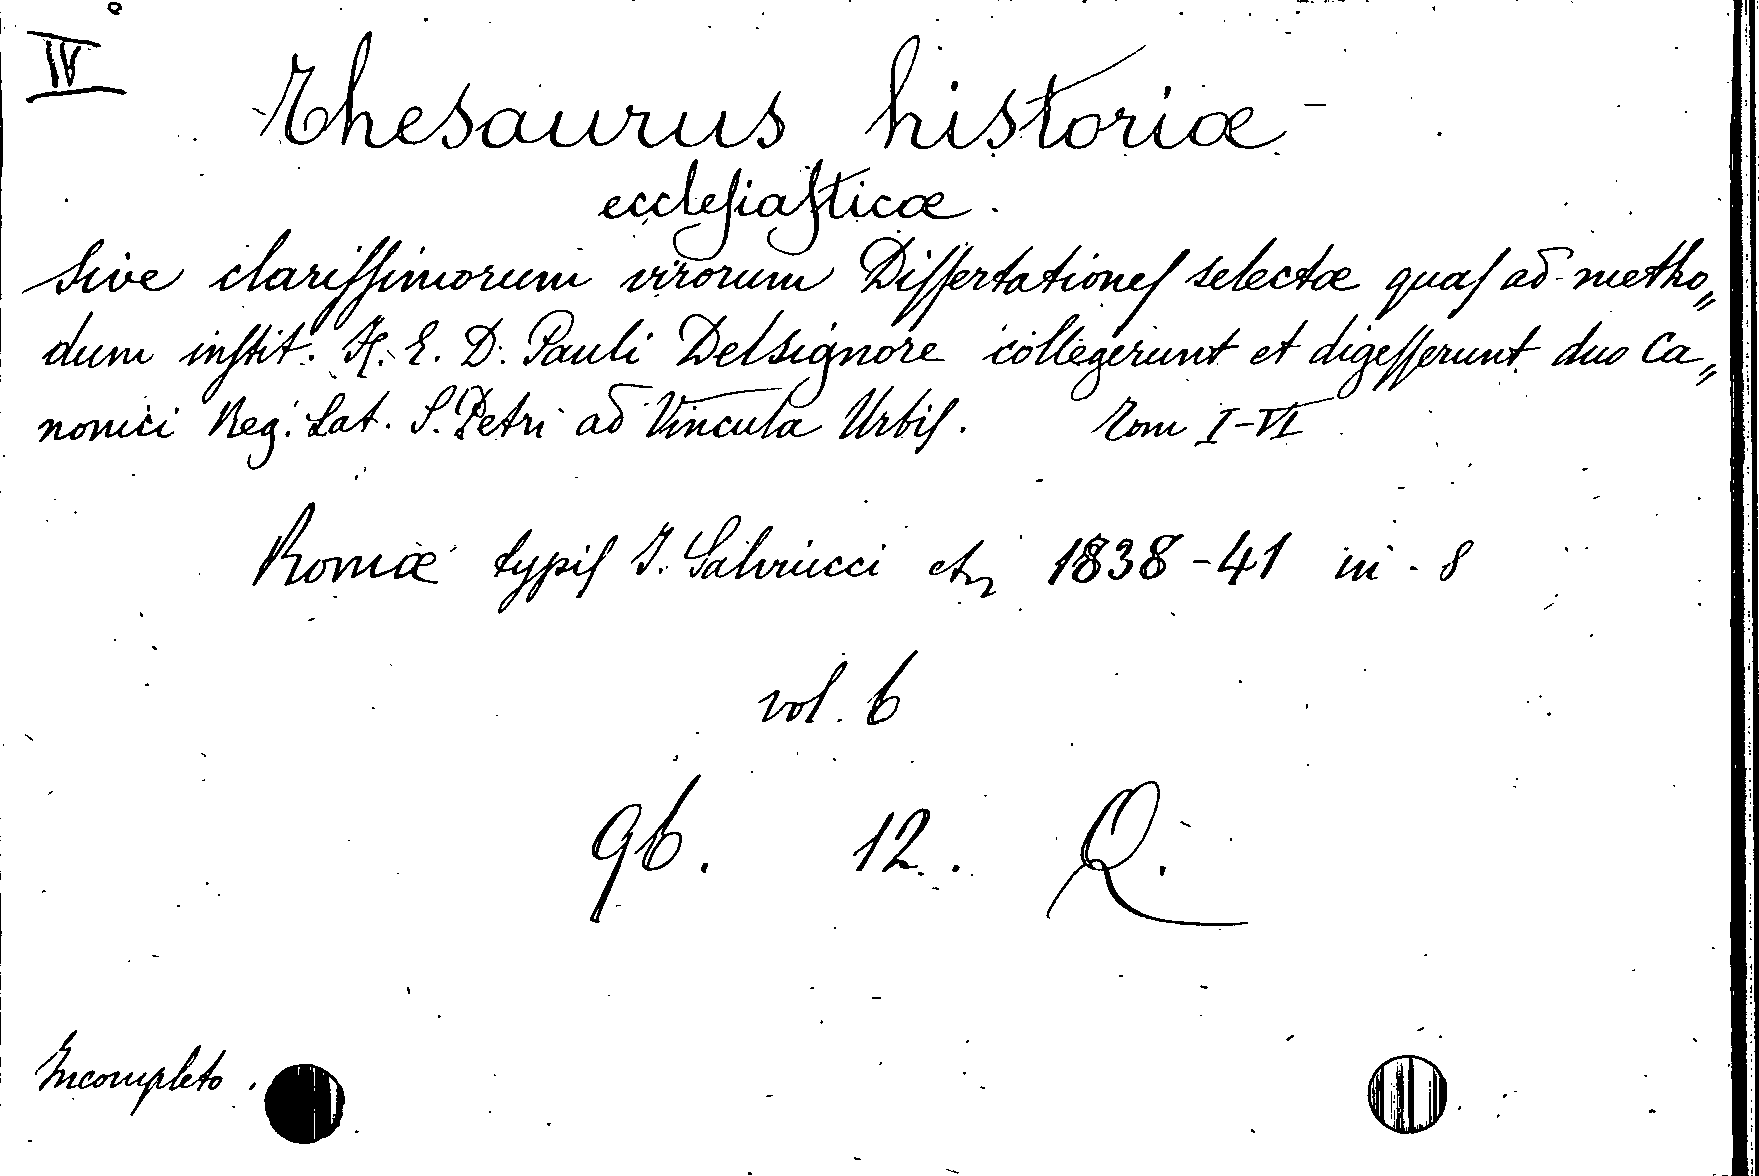 IV
Thesaurus historiæ
ecclesiasticæ.
Sive clarissimorum virorum Dissertationes selectæ quas ad metho„
dum instit. H. E. D. Pauli Delsignore collegerunt et digesserunt duo Ca„
nonici Reg. Lat. S. Petri ad Vincula Urbis. Tom I-VI
Romæ typis J. Salviucci etc 1838-41 in-8
vol. 6
96. 12. Q.
Incompleto.